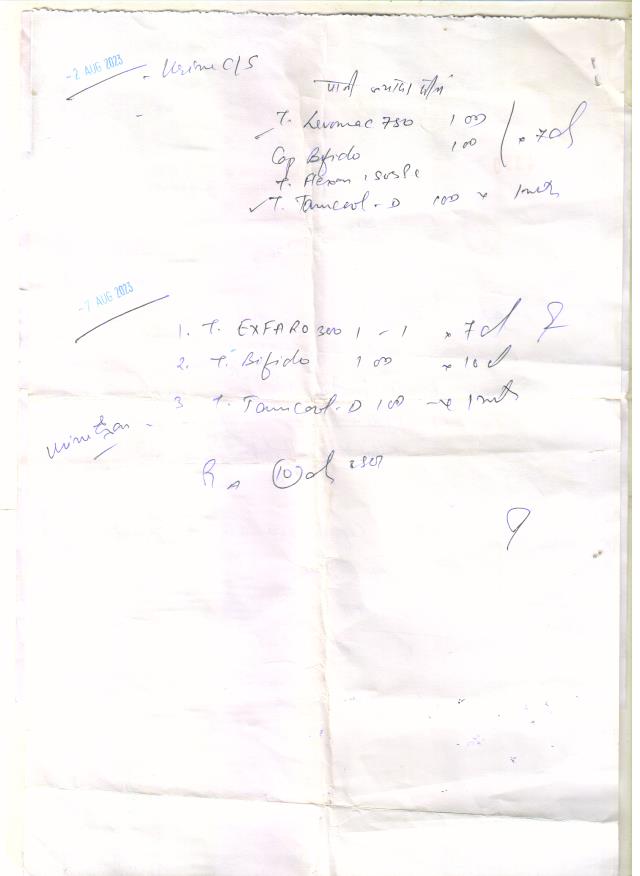 -2 AUG 2023
- Urine C/S
पानी ज्यादा पीना
T. Levomac 750 100
Cap Bifido 100 x 7d
T. Flexon
T. Tamcool-D 100 x 1mth
-7 AUG 2023
1. T. EXFARO 300 1 - 1 x 7d
2. T. Bifido 100 x 10d
3 T. Tamcool-D 100 -x 1mth
Urine -
R 10 d